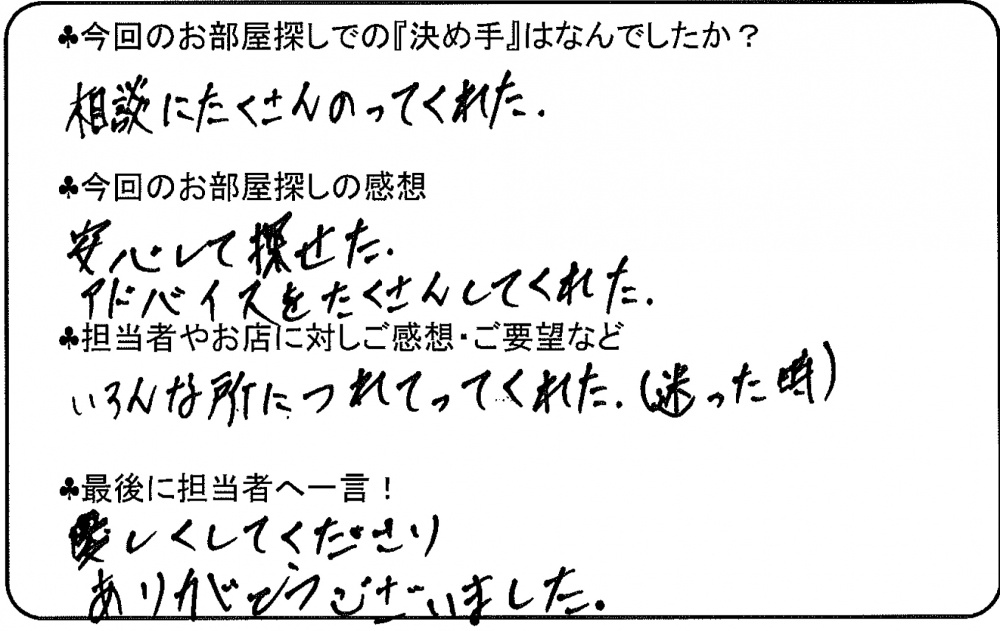 ♣今回のお部屋探しでの『決め手』はなんでしたか？
相談にたくさんのってくれた.
♣今回のお部屋探しの感想
安心して探せた.
アドバイスをたくさんしてくれた.
♣担当者やお店に対しご感想・ご要望など
いろんな所につれてってくれた.(迷った時)
♣最後に担当者へ一言！
しくしてくださり
ありがとうございました.